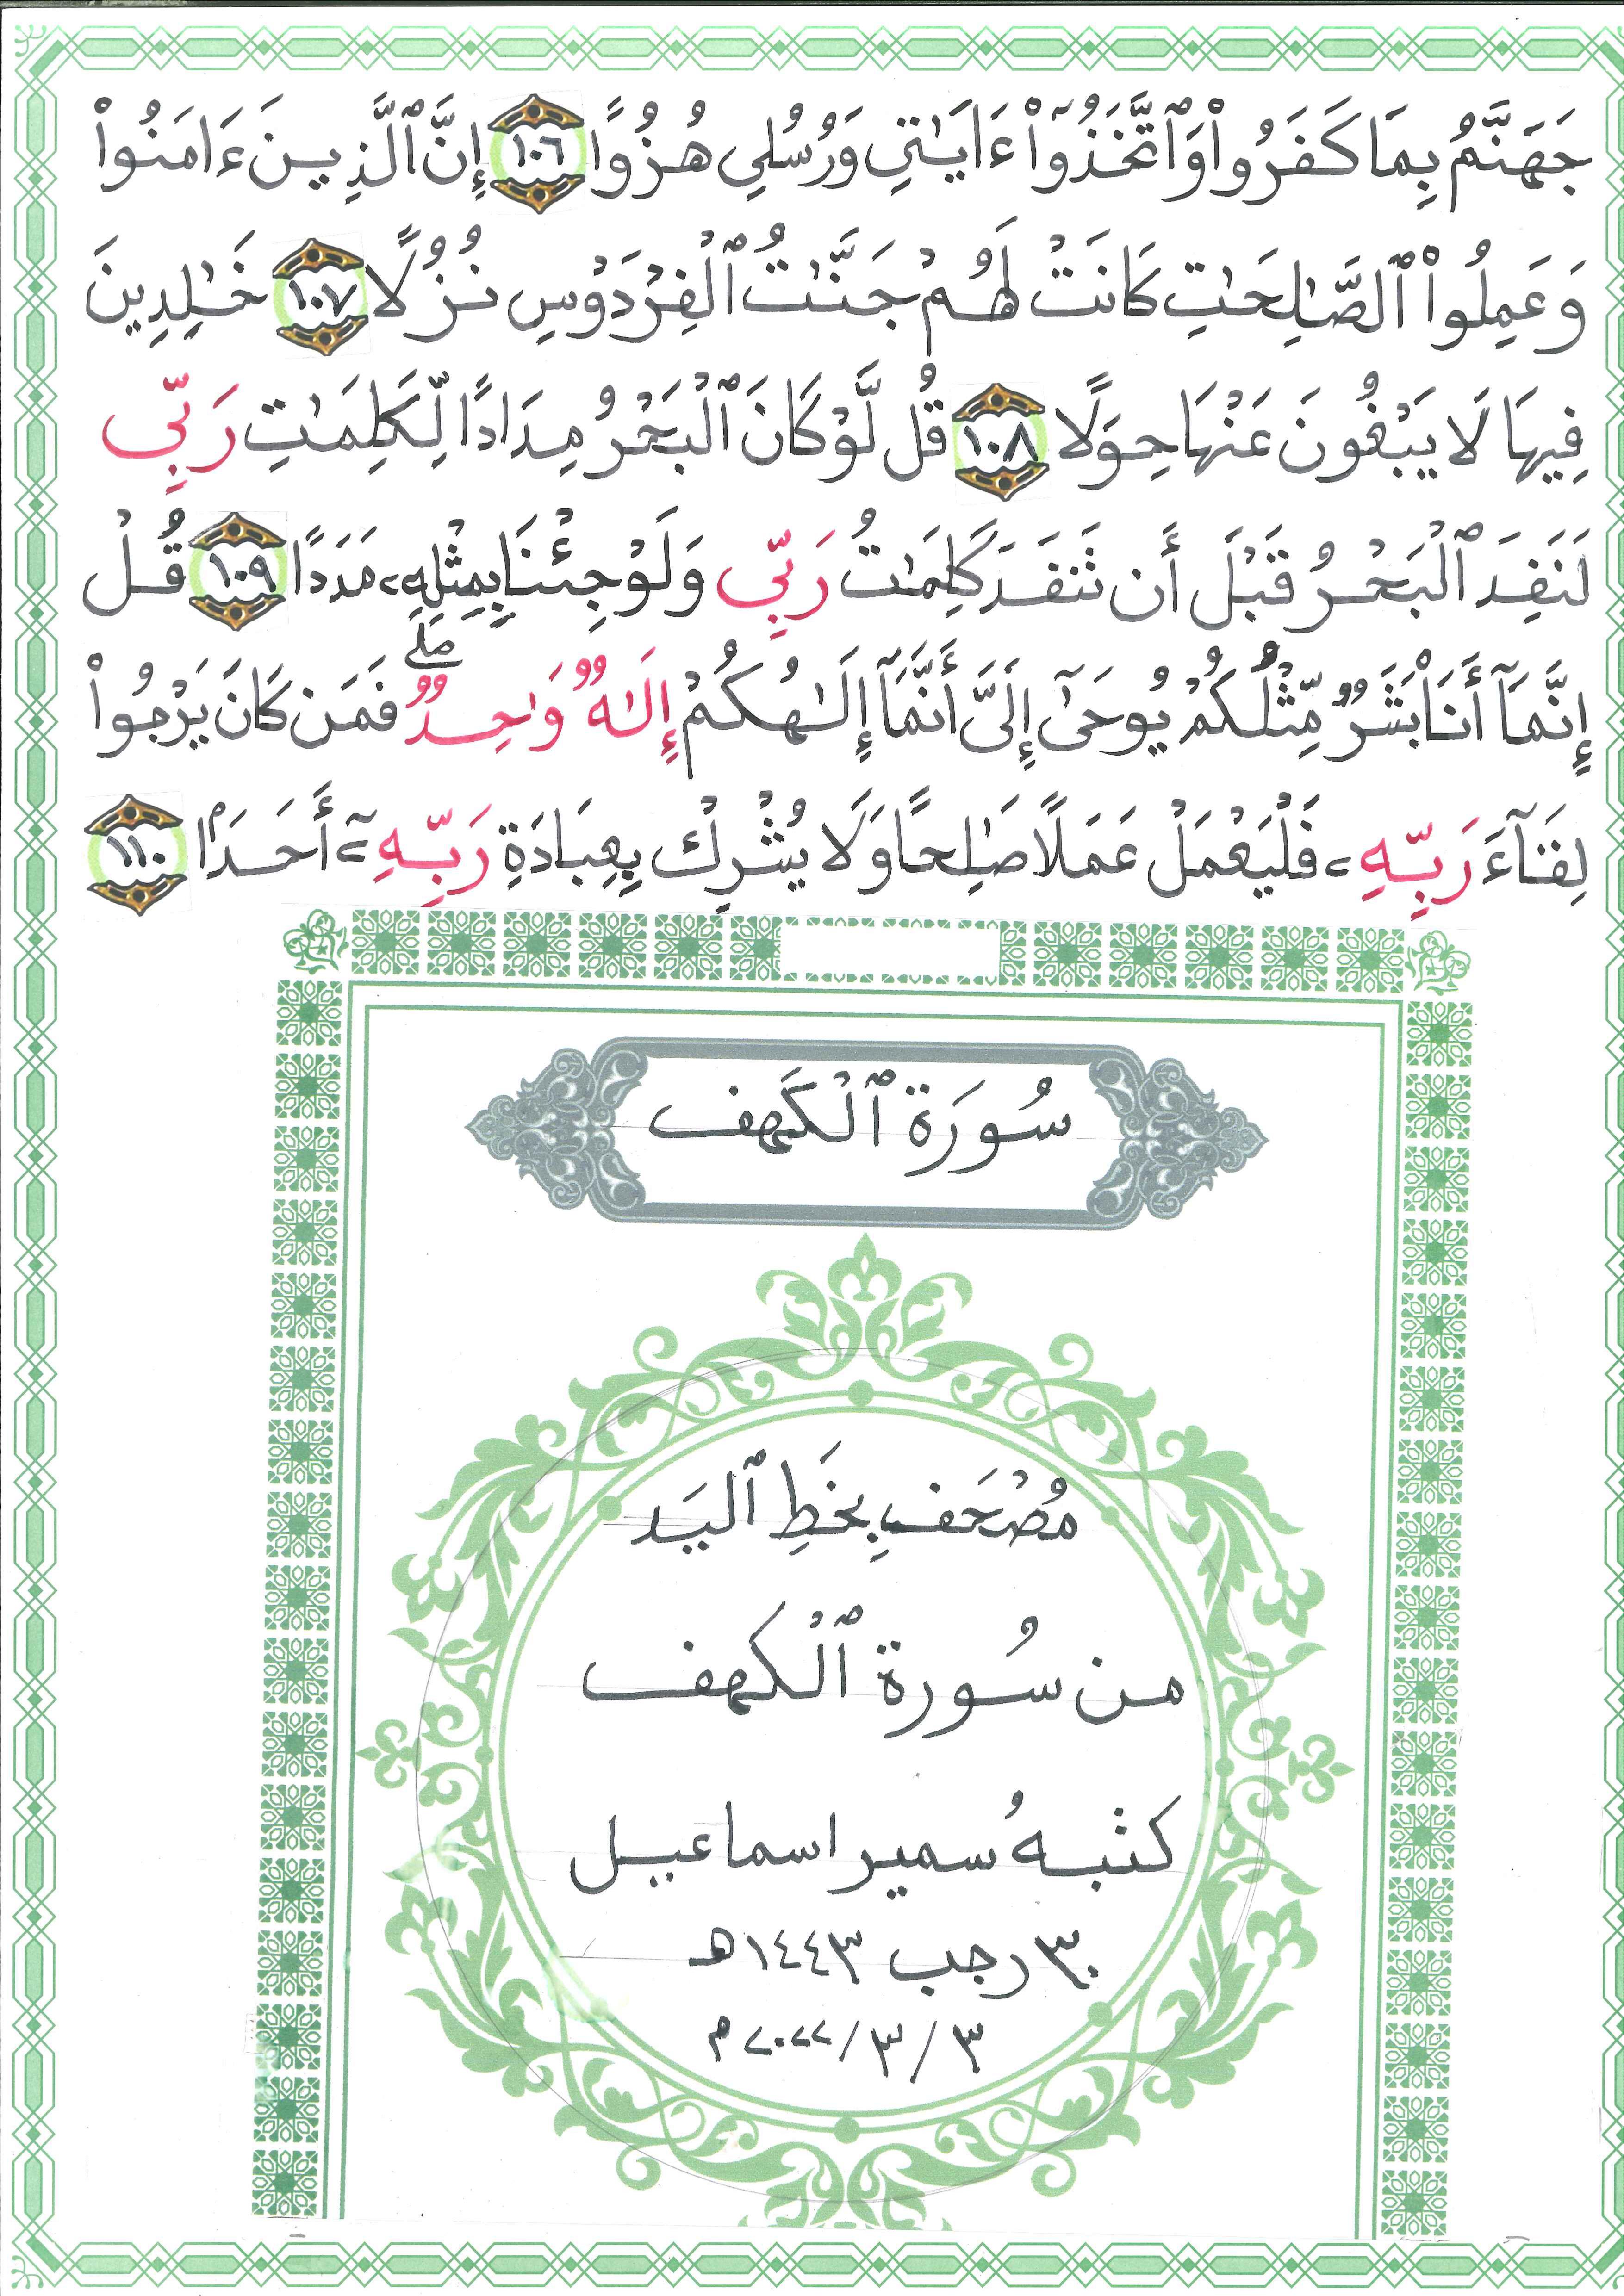 جَهَنَّمُ بِمَا كَفَرُوا۟ وَٱتَّخَذُوٓا۟ ءَايَٰتِي وَرُسُلِي هُزُوًا ١٠٦ إِنَّ ٱلَّذِينَ ءَامَنُوا۟
وَعَمِلُوا۟ ٱلصَّٰلِحَٰتِ كَانَتْ لَهُمْ جَنَّٰتُ ٱلْفِرْدَوْسِ نُزُلًا ١٠٧ خَٰلِدِينَ
فِيهَا لَا يَبْغُونَ عَنْهَا حِوَلًا ١٠٨ قُل لَّوْ كَانَ ٱلْبَحْرُ مِدَادًا لِّكَلِمَٰتِ رَبِّي
لَنَفِدَ ٱلْبَحْرُ قَبْلَ أَن تَنفَدَ كَلِمَٰتُ رَبِّي وَلَوْ جِئْنَا بِمِثْلِهِۦ مَدَدًا ١٠٩ قُلْ
إِنَّمَآ أَنَا۠ بَشَرٌ مِّثْلُكُمْ يُوحَىٰٓ إِلَىَّ أَنَّمَآ إِلَٰهُكُمْ إِلَٰهٌ وَٰحِدٌ ۖ فَمَن كَانَ يَرْجُوا۟
لِقَآءَ رَبِّهِۦ فَلْيَعْمَلْ عَمَلًا صَٰلِحًا وَلَا يُشْرِكْ بِعِبَادَةِ رَبِّهِۦٓ أَحَدَۢا ١١٠
سُورَة ٱلْكَهف
مُصْحَف بِخَطِ ٱليَد
من سُورة ٱلْكهف
كتبهُ سمير اسماعيل
٣٠ رجب ١٤٤٣هـ
٣ / ٣ / ٢٠٢٢م